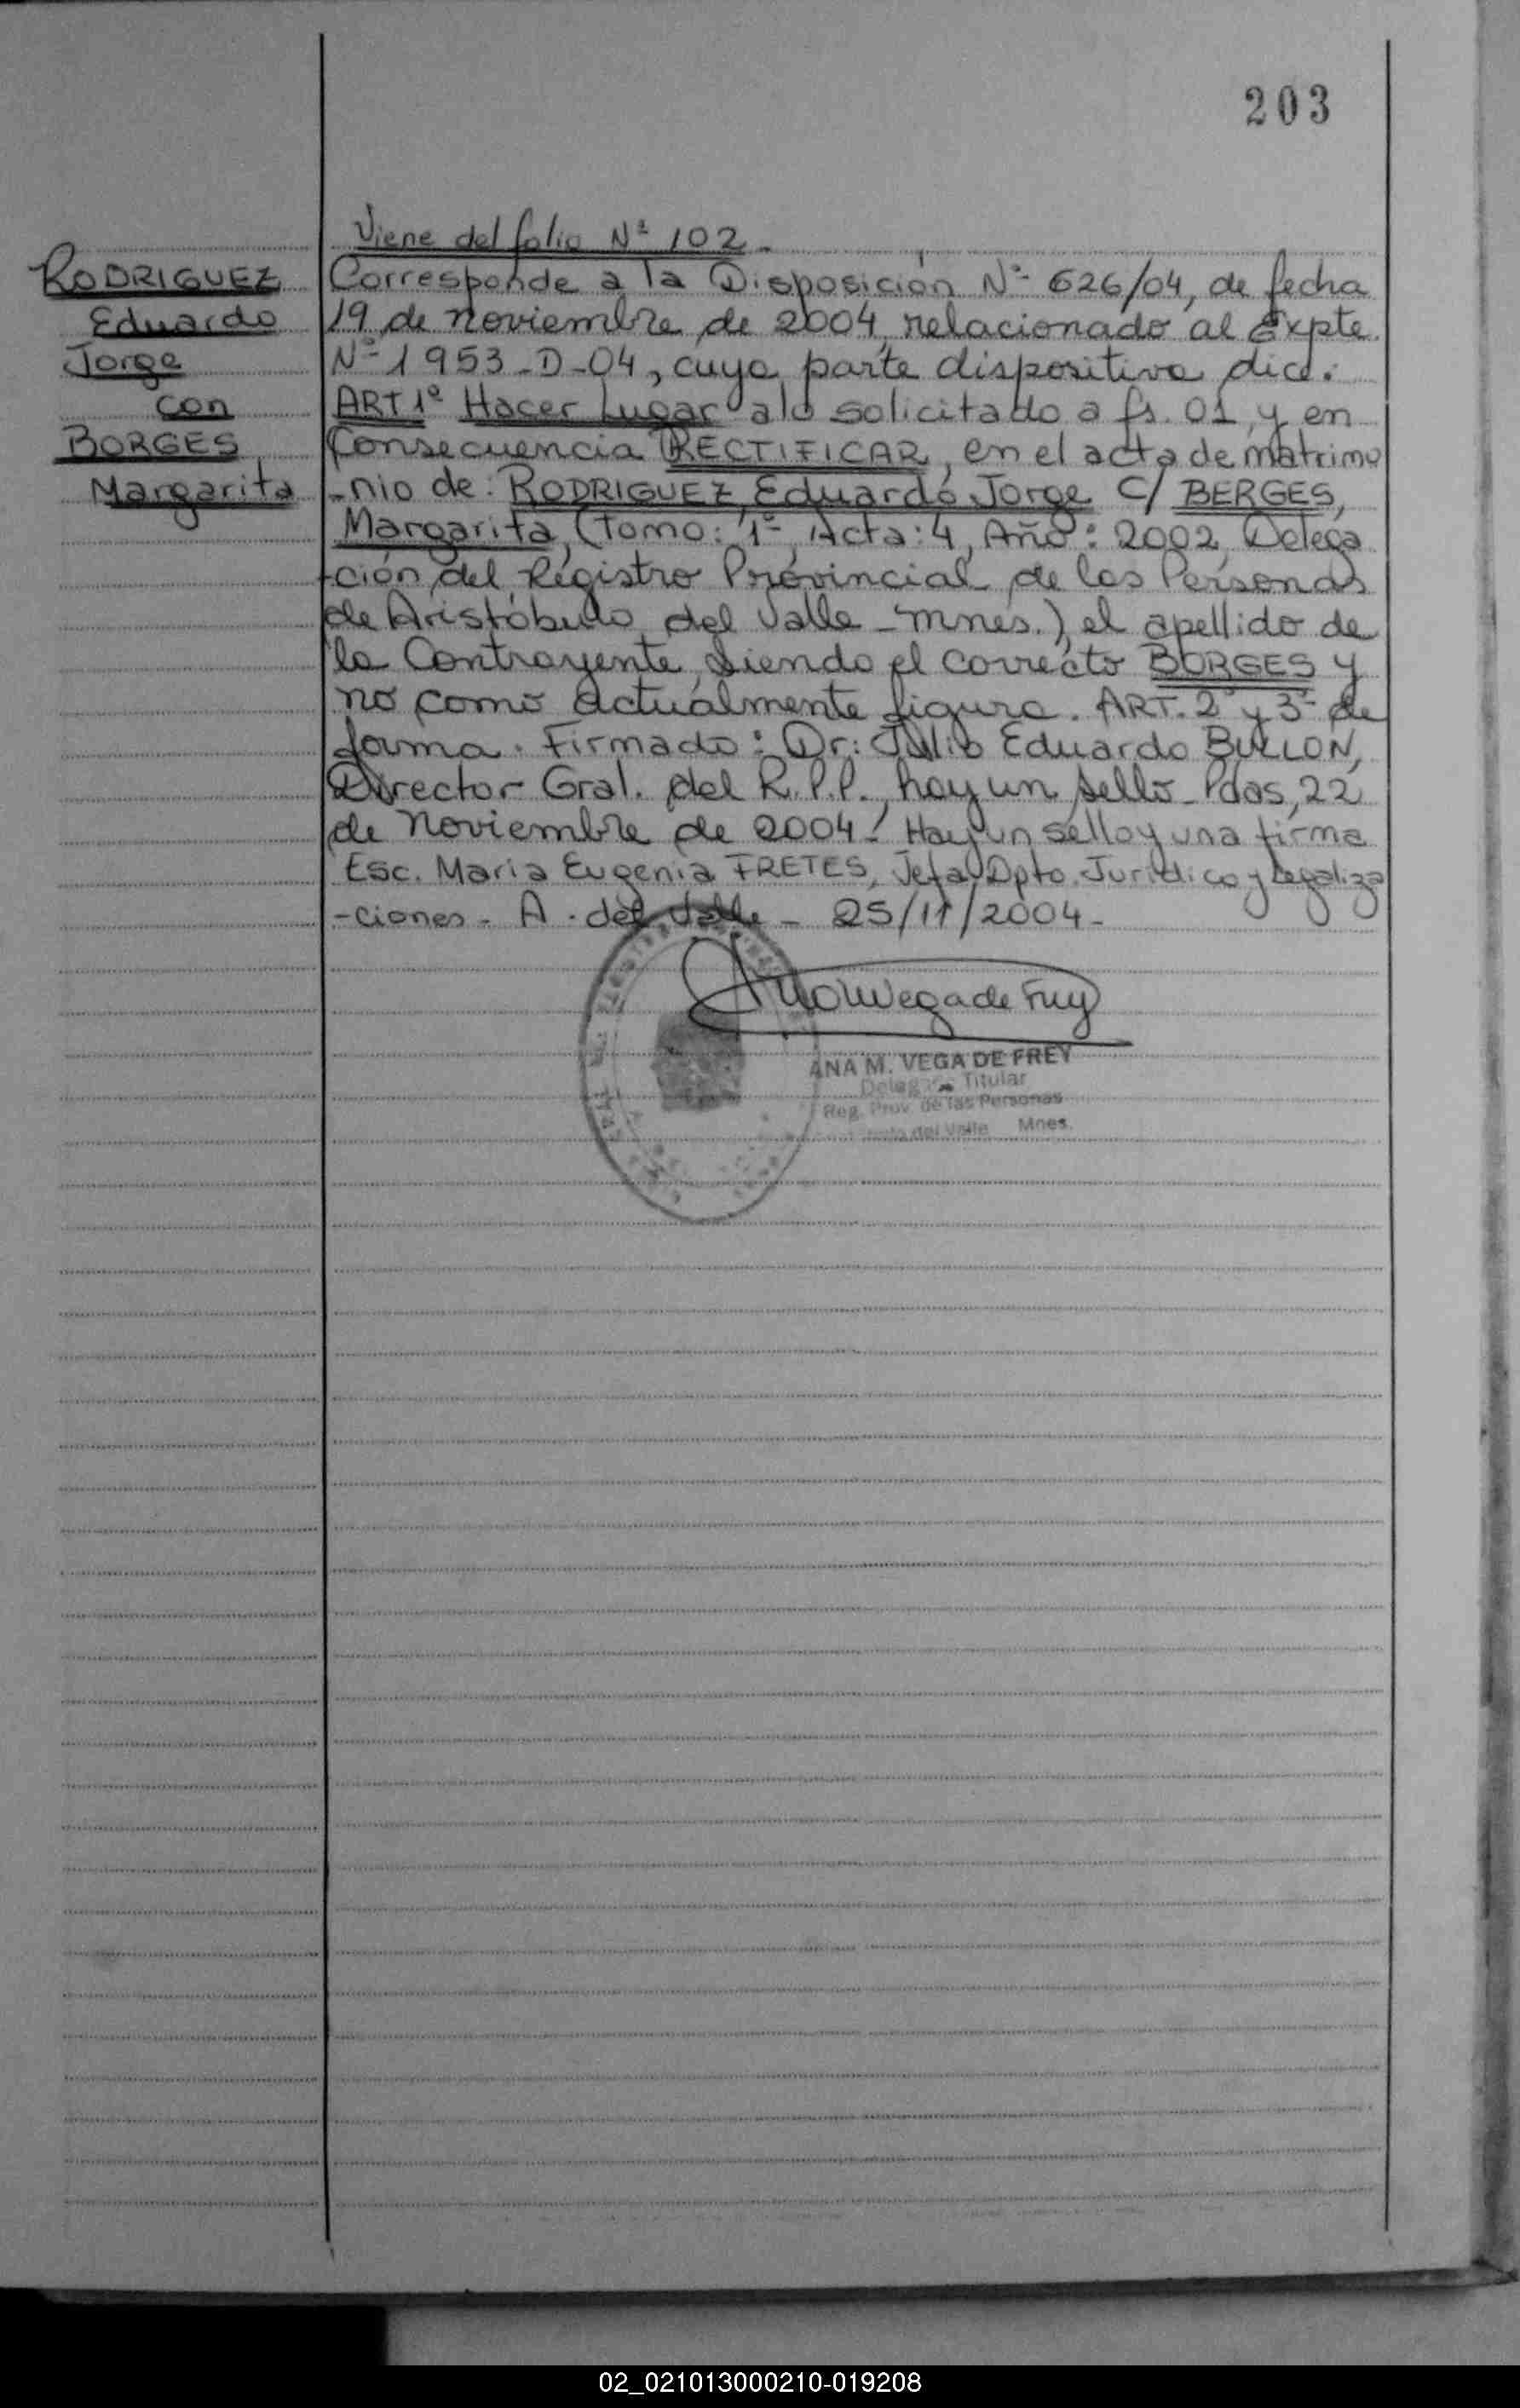 203
Viene del folio Nº 102.
RODRIGUEZ
Eduardo
Jorge
con
BORGES
Margarita
Corresponde a la Disposición Nº 626/04, de fecha
19 de noviembre de 2004, relacionado al Expte.
Nº 1953-D-04, cuya parte dispositiva dice:
ART 1º Hacer Lugar a lo solicitado a fs. 01, y en
Consecuencia RECTIFICAR, en el acta de matrimo
-nio de: RODRIGUEZ, Eduardo Jorge C/ BERGES,
Margarita, (Tomo: 1º, Acta: 4, Año: 2002, Delega
-ción del Registro Provincial de las Personas
de Aristóbulo del Valle - mnes.), el apellido de
la Contrayente, siendo el correcto BORGES y
no como actualmente figura. ART. 2º y 3º de
forma. Firmado: Dr: Julio Eduardo BULLON,
Director Gral. del R.P.P., hay un sello - Pdas, 22
de noviembre de 2004. Hay un sello y una firma
Esc. Maria Eugenia FRETES, Jefa Dpto. Jurídico y Legaliza
-ciones - A. del Valle - 25/11/2004 -
ANA M. VEGA DE FREY
Titular
Reg. Prov. de las Personas
del Valle Mnes.
02_021013000210-019208